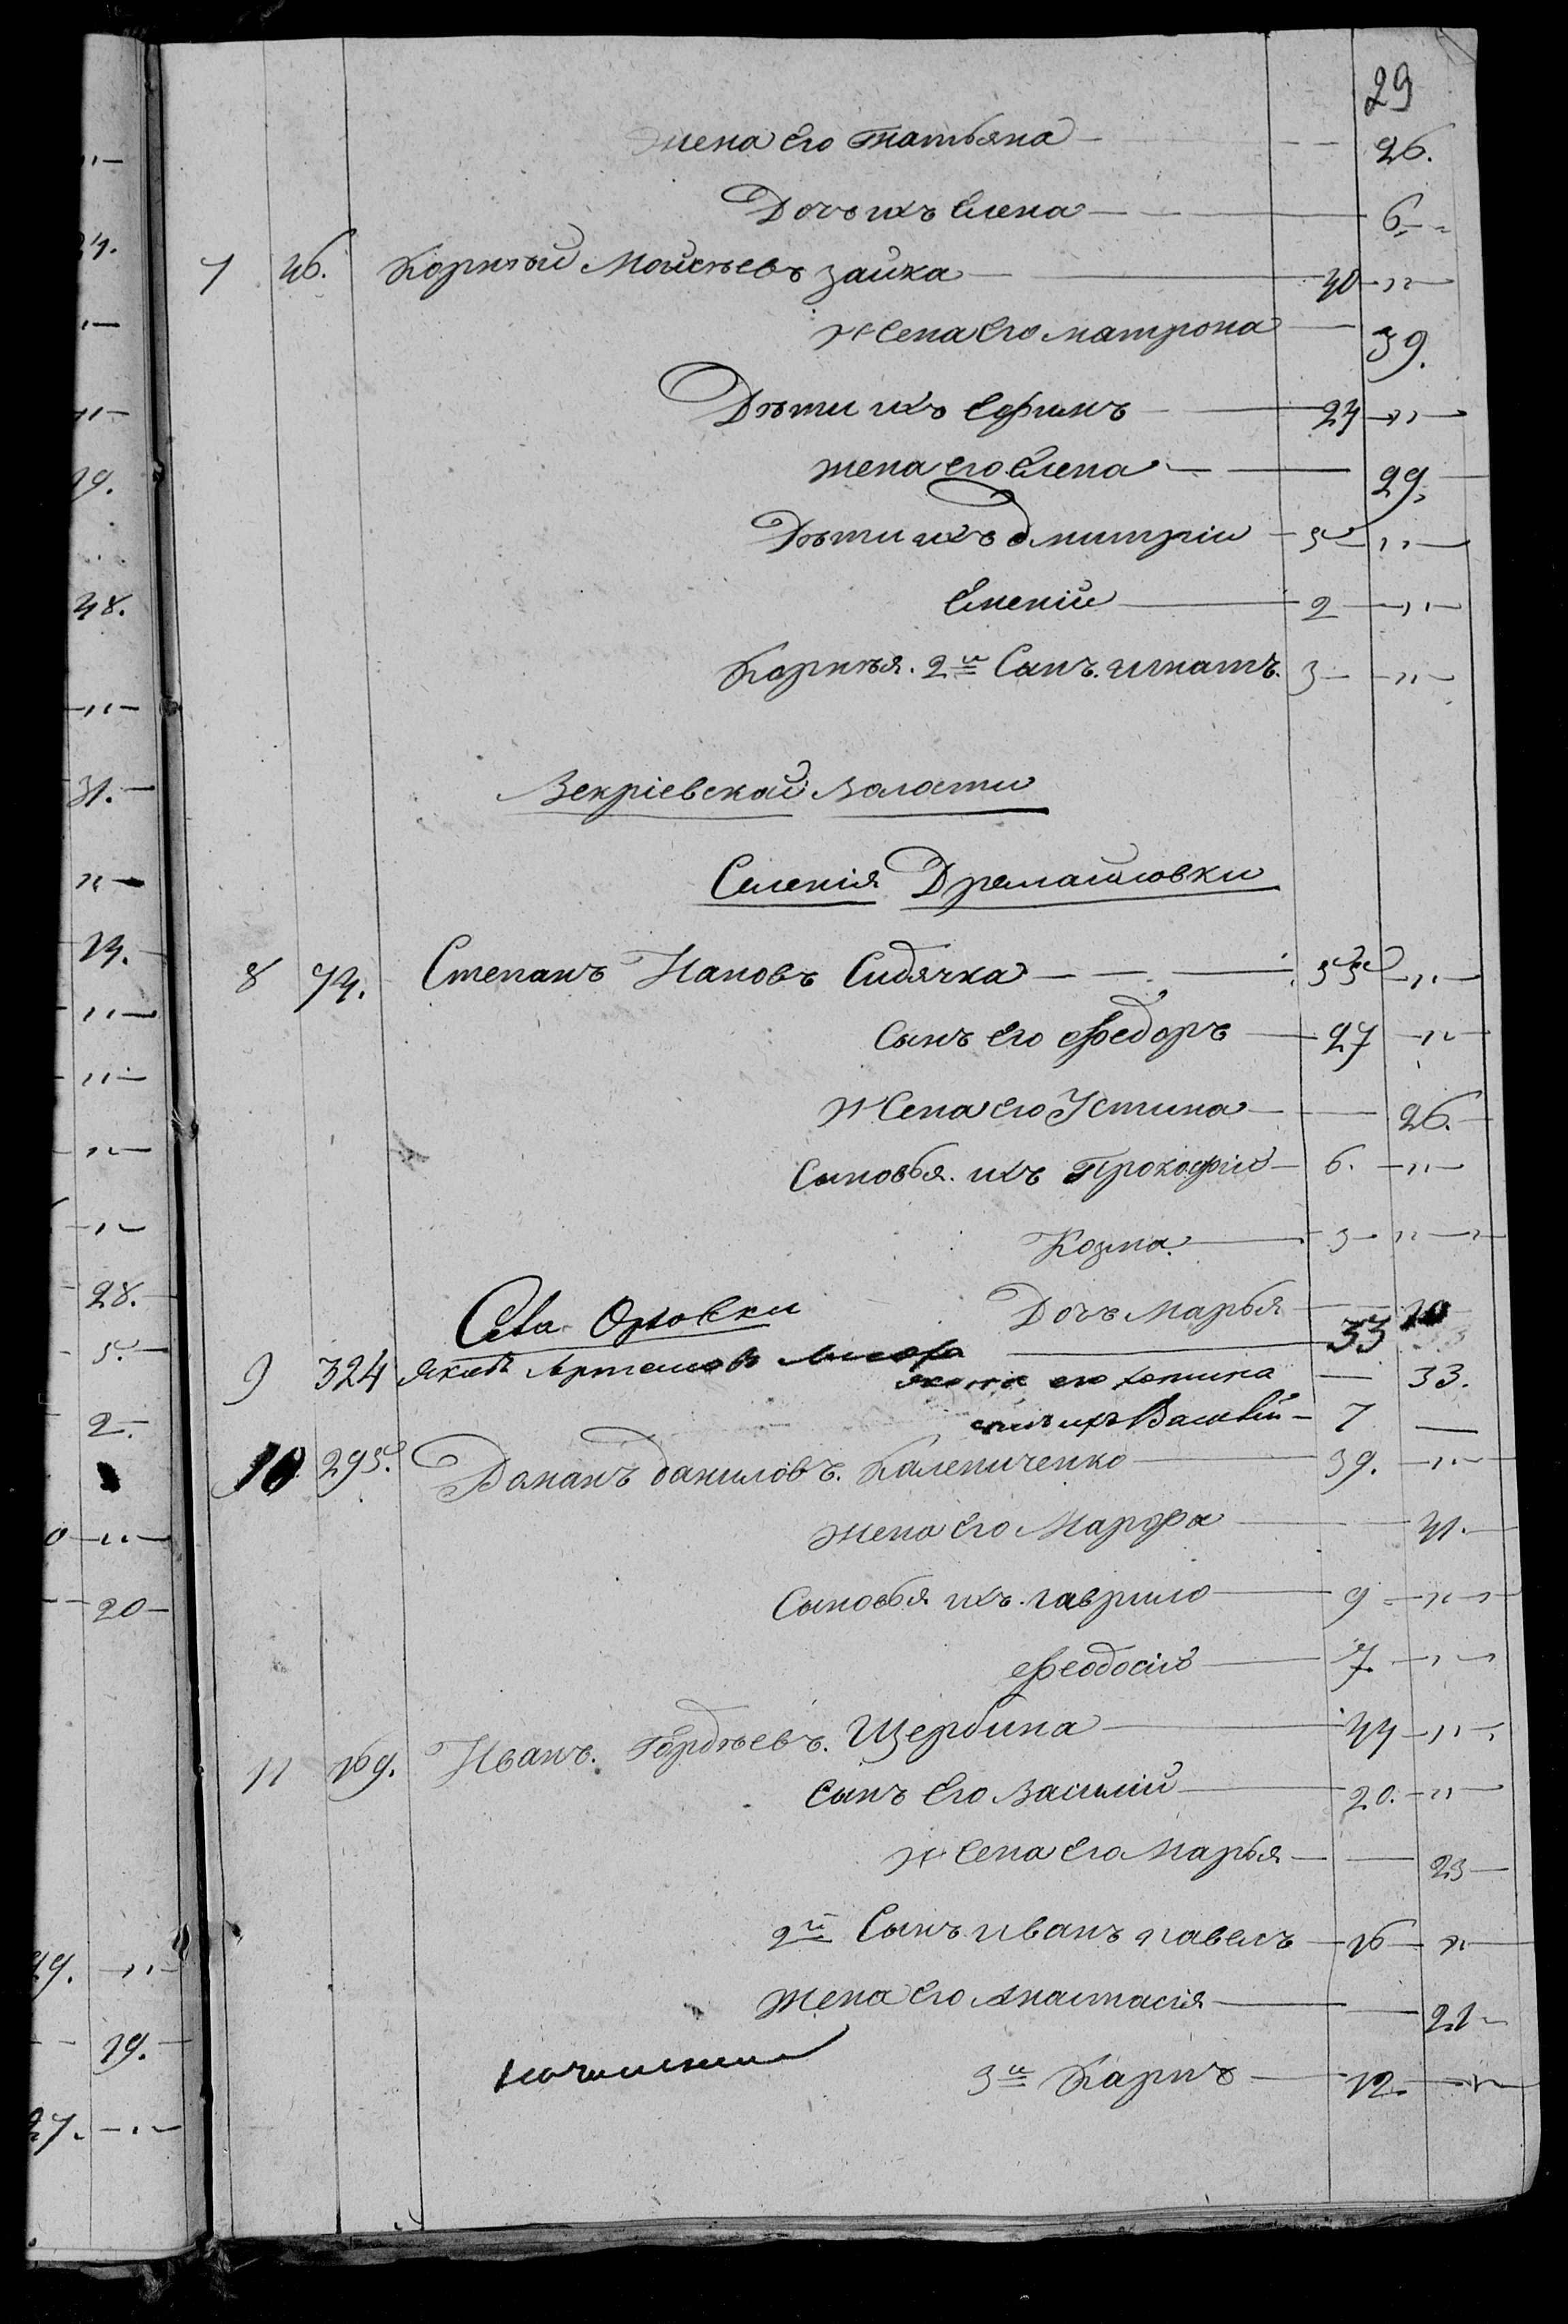 29
жена его Татьяна — 26.
Дочь ихъ Елена — 6 „
7 46. Корнѣй Мойсѣевъ Заика — 40 — „ —
Жена его Матрона — 39.
Дѣти ихъ Ефимъ — 24 — „ —
жена его Елена — 29.
Дѣти ихъ Дмитрій — 5 — „ —
Евгеній — 2 — „ —
Корнѣя. 2й Сынъ. Игнатъ. 3 — „ —
Векріевской Волости
Селенія Дремайловки
8 74. Степанъ Ивановъ Сидячка — 55 — „ —
Сынъ его Федоръ — 27 — „ —
Жена его Устина — 26. —
Сыновья. ихъ Прокофій — 6. — „ —
Козма. — 3 — „ —
Дочь Марья — 10
Села Орловки
9 324 Яковъ Артемовъ — 33
жена его — 33.
сынъ ихъ Василій — 7 —
10 295. Романъ Даниловъ. Калениченко — 39. — „ —
жена его Марфа — 41. —
Сыновья ихъ. Гаврило — 9 — „ —
Феодосій — 7 — „ —
11 169. Иванъ. Гордѣевъ. Щербина — 44 — „ —
Сынъ Его Василій — 20. — „ —
Жена его Марья — 23 —
2й Сынъ Ивана Павелъ — 16 — „ —
жена его Анастасія — 21 —
3й Карпъ — 12. — „ —